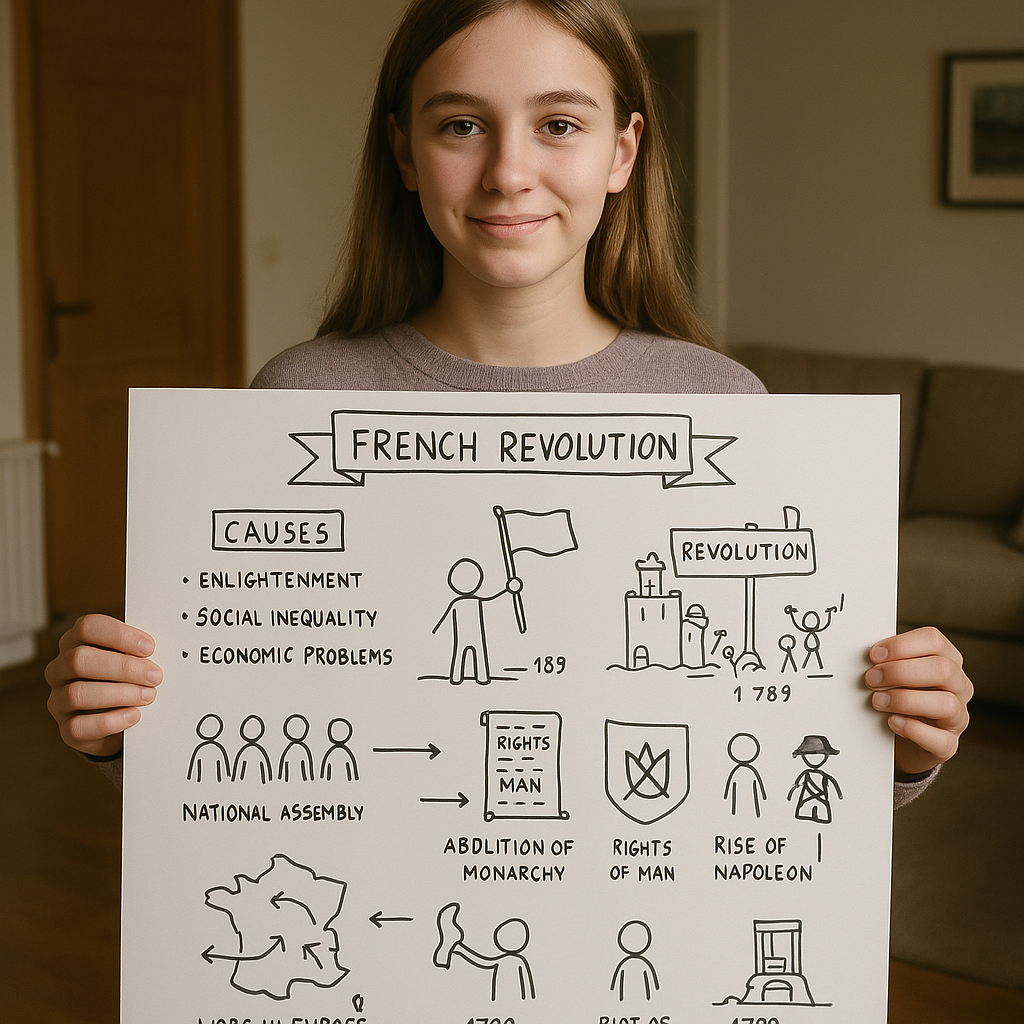 FRENCH REVOLUTION
CAUSES
• ENLIGHTENMENT
• SOCIAL INEQUALITY
• ECONOMIC PROBLEMS
189
REVOLUTION
1 789
NATIONAL ASSEMBLY
RIGHTS
MAN
ABDLITION OF
MONARCHY
RIGHTS
OF MAN
RISE OF
NAPOLEON